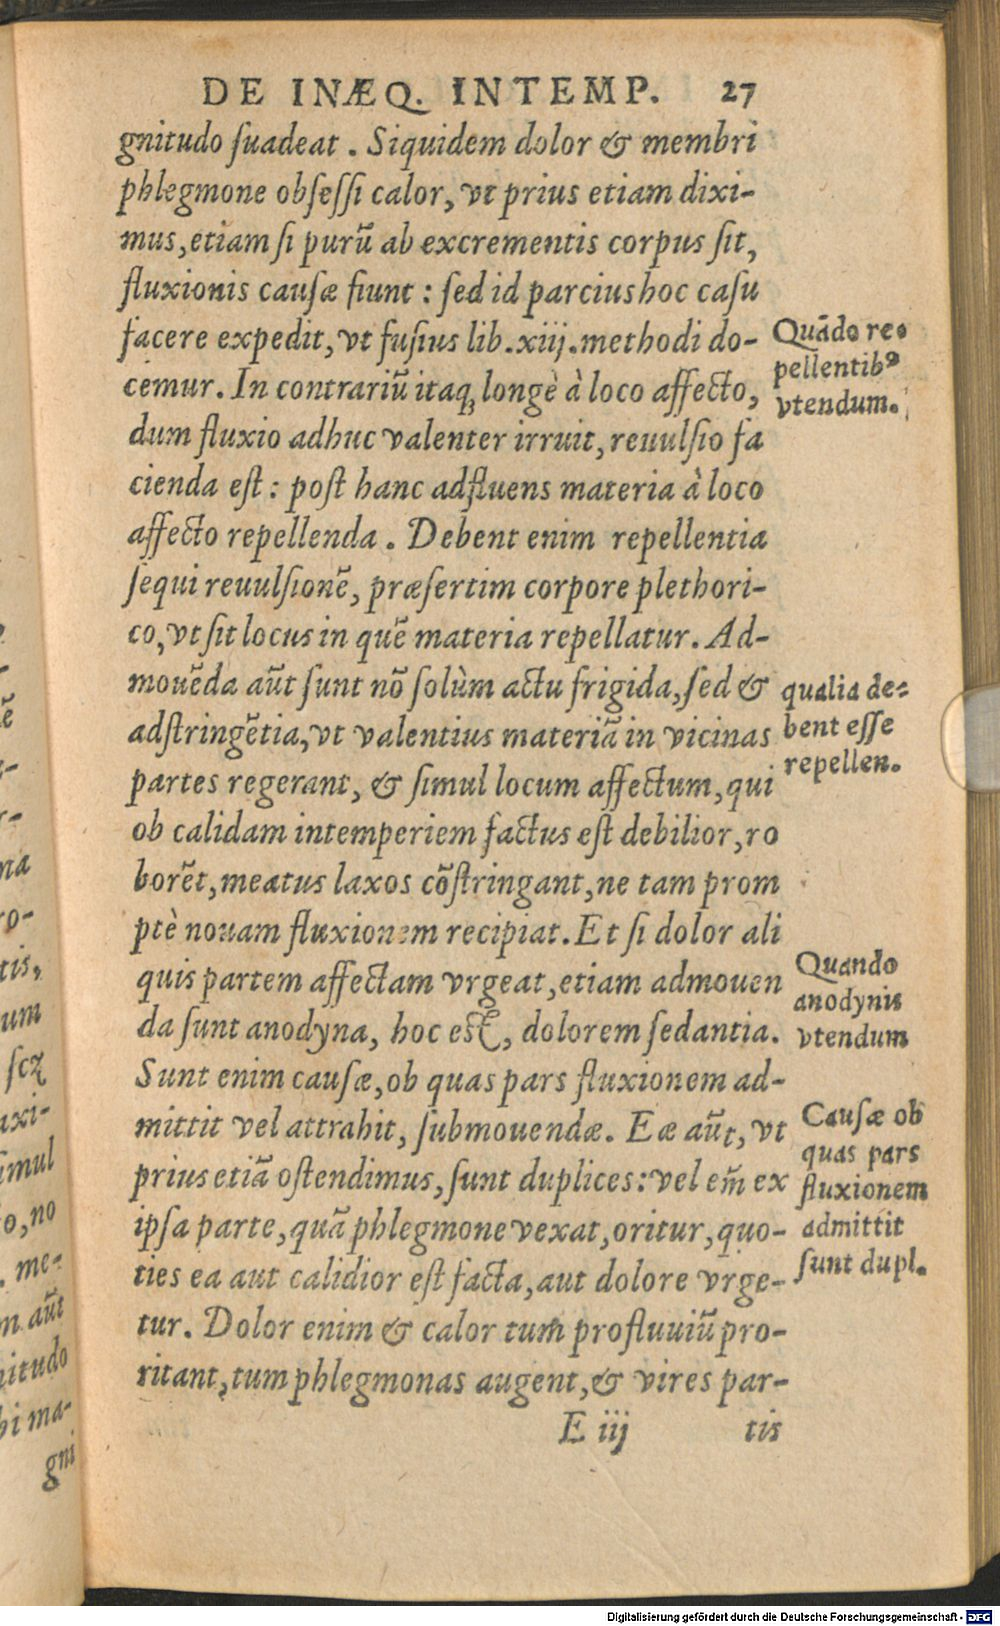 DE INÆQ. INTEMP. 27
gnitudo ſuadeat . Siquidem dolor & membri
phlegmone obſeſſi calor, vt prius etiam dixi-
mus, etiam ſi purũ ab excrementis corpus ſit,
fluxionis cauſæ fiunt : ſed id parcius hoc caſu
facere expedit, vt fuſius lib. xiij. methodi do-
cemur. In contrariũ itaq; longè à loco affecto,
dum fluxio adhuc valenter irruit, reuulſio fa
cienda eſt : poſt hanc adfluens materia à loco
affecto repellenda . Debent enim repellentia
ſequi reuulſionẽ, præſertim corpore plethori-
co, vt ſit locus in quẽ materia repellatur. Ad-
mouẽda aũt ſunt nõ ſolùm actu frigida, ſed &
adſtringẽtia, vt valentius materiã in vicinas
partes regerant, & ſimul locum affectum, qui
ob calidam intemperiem factus eſt debilior, ro
borẽt, meatus laxos cõſtringant, ne tam prom
ptè nouam fluxionem recipiat. Et ſi dolor ali
quis partem affectam vrgeat, etiam admouen
da ſunt anodyna, hoc eſt, dolorem ſedantia.
Sunt enim cauſæ, ob quas pars fluxionem ad-
mittit vel attrahit, ſubmouendæ. Eæ aũt, vt
prius etiã oſtendimus, ſunt duplices: vel em̃ ex
ipſa parte, quã phlegmone vexat, oritur, quo-
ties ea aut calidior eſt facta, aut dolore vrge-
tur. Dolor enim & calor tum profluuiũ pro-
ritant, tum phlegmonas augent, & vires par-
E iij tis
Quãdo re
pellentibꝰ
vtendum.
qualia de-
bent eſſe
repellen.
Quando
anodynis
vtendum
Cauſæ ob
quas pars
fluxionem
admittit
ſunt dupl.
na
ro-
tis,
um
ſcꝫ
uxi-
ſimul
to, no
. me-
m aũt
nitudo
bi ma-
gni
Digitalisierung gefördert durch die Deutsche Forschungsgemeinschaft - DFG